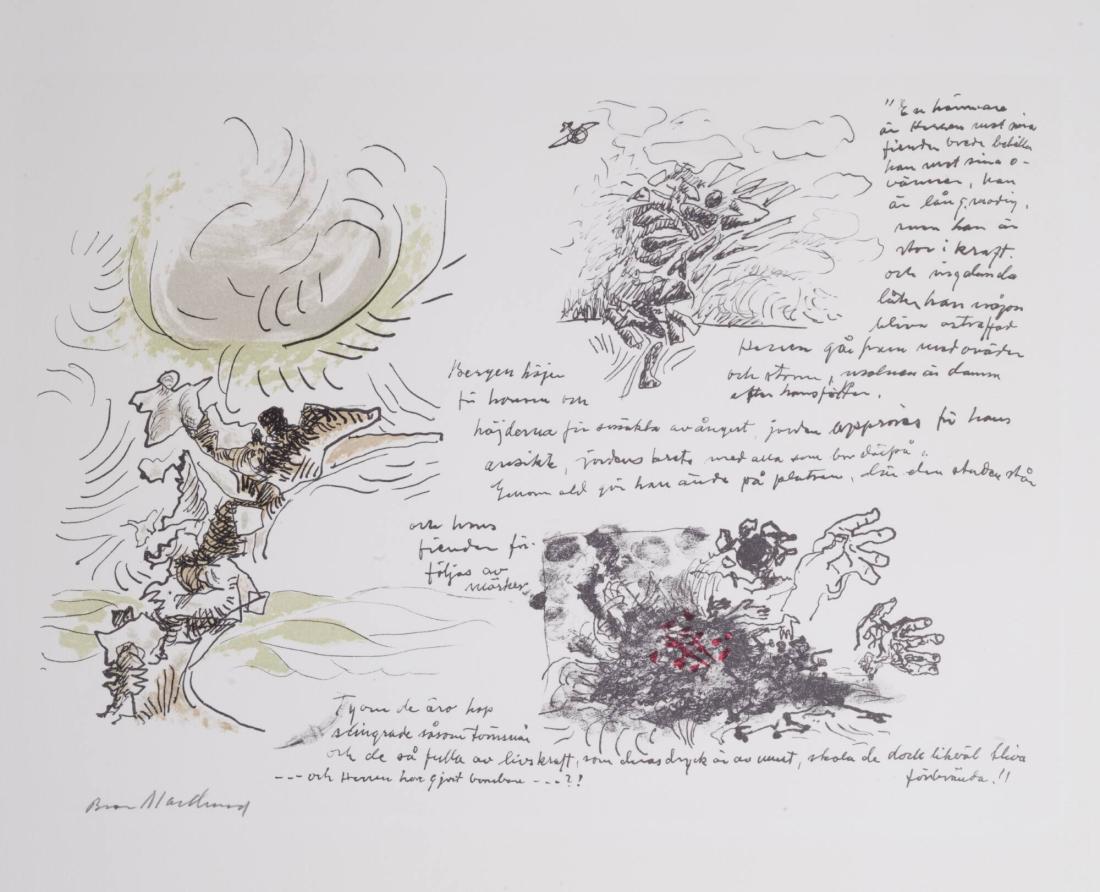 "En hämnare
är Herren mot sina
fiender, vrede behåller
han mot sina o-
vänner, han
är långmodig,
men han är
stor i kraft
och
låter han någon
bliva ostraffad
Herren går fram med oväder
och storm, molnen är damm
efter hans fötter.
Bergen
för honom och
höjderna för av ångest, jorden för hans
ansikte, jordens krets med alla som bo därpå.
Genom gör han ände på platsen, där den staden står
och hans
fiender för-
följas av
mörker.
Ty om de äro hop
slingrade såsom törnsnår
och de så fulla av livskraft, som deras dryck är av must, skola de dock likväl bliva
förbrända."
--- och Herren har gjort bomben ---?!